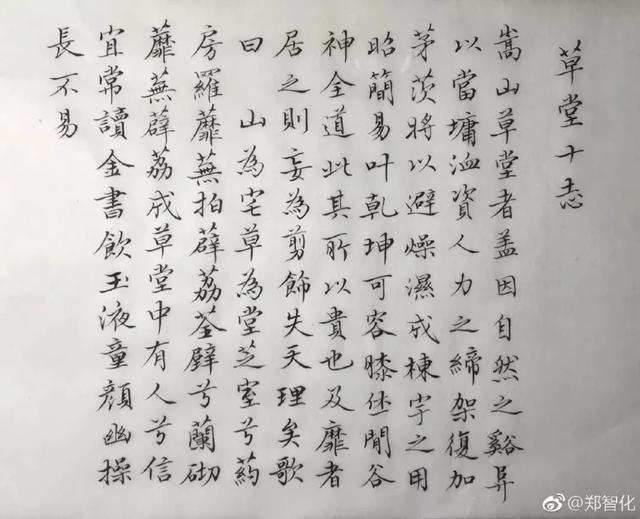 草堂十志
嵩山草堂者盖因自然之谿异
以當墉洫資人力之締架復加
茅茨將以避燥濕成棟宇之用
昭簡易叶乾坤可容膝休閒谷
神全道此其所以貴也及靡者
居之則妄為剪飾失天理矣歌
曰 山為宅草為堂芝室兮葯
房羅蘼蕪拍薜荔荃壁兮蘭砌
蘼蕪薜荔成草堂中有人兮信
宜常讀金書飲玉液童顏幽操
長不易
@郑智化